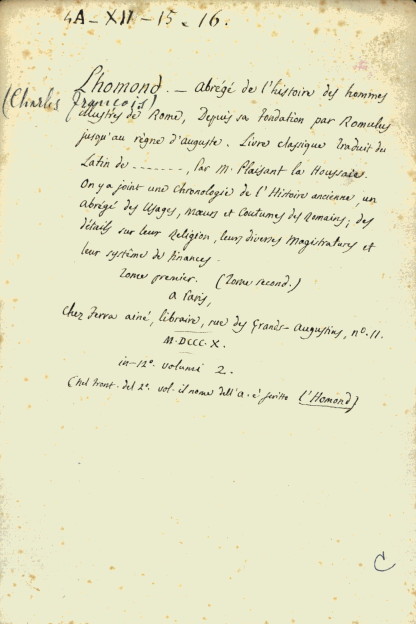 4A-XII-15-16.
Lhomond. — Abrégé de l'histoire des hommes
(Charles François)
illustres de Rome, Depuis sa fondation par Romulus
jusqu'au règne d'auguste. Livre classique traduit du
Latin de -------, Par M. Plaisant la Houssaie.
On y a joint une Chronologie de l'Histoire ancienne, un
abrégé des Usages, Mœurs et Coutumes des Romains; des
détails sur leur Religion, leurs diverses Magistratures et
leur système de finances.
Tome premier. (Tome second.)
a Paris,
Chez Ferra aîné, libraire, rue des Grands-Augustins, nº. 11.
M.DCCC.X.
in-12º. volumi 2.
(Nel front. del 2º. vol. il nome dell'a. è scritto L'Homond)
C